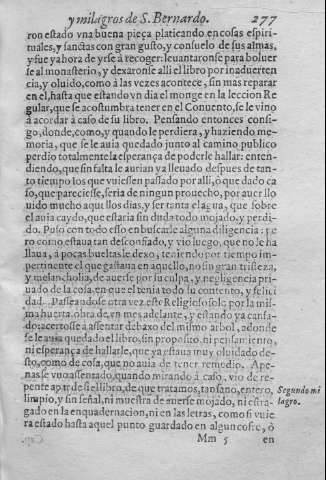 y milagros de S. Bernardo. 277
ron estado vna buena pieça platicando en cosas espiri-
tuales, y sanctas con gran gusto, y consuelo de sus almas,
y fue ya hora de yrse à recoger: leuantaronse para boluer
se al monasterio, y dexaronse alli el libro por inaduerten
cia, y oluido, como à las vezes acontece, sin mas reparar
en el, hasta que estando vn dia el monge en la leccion Re
gular, que se acostumbra tener en el Conuento, se le vino
à acordar à caso de su libro. Pensando entonces consi-
go, donde, como, y quando le perdiera, y haziendo me-
moria, que se le auia quedado junto al camino publico
perdio totalmente la esperança de poderle hallar: enten-
diendo, que sin falta le aurian ya lleuado despues de tan-
to tiempo los que vuiessen passado por alli, ò que dado ca
so, que pareciesse, seria de ningun prouecho, por auer llo
uido mucho aquellos dias, y ser tanta el agua, que sobre
el auia caydo, que estaria sin duda todo mojado, y perdi-
do. Puso con todo esso en buscarle alguna diligencia: pe
ro como estaua tan desconfiado, y vio luego, que no le ha
llaua, à pocas bueltas le dexo, teniendo por tiempo im-
pertinente el que gastaua en aquello, no sin gran tristeza,
y melancholia, de auerse por su culpa, y negligencia pri-
uado de la cosa, en que el tenia todo su contento, y felici
dad. Passeandose otra vez este Religioso solo por la mis-
ma huerta, obra de, en mes adelante, y estando ya cansa-
do: acertosse à assentar debaxo del mismo arbol, adonde
se le auia quedado el libro, sin proposito, ni pensamiento,
ni esperança de hallarle, que ya estaua muy oluidado de-
sto, como de cosa, que no auia de tener remedio. Ape-
nas se vuo assentado, quando mirando à caso, vio de re-
pente a par de si el libro, de que tratamos, tan sano, entero,
limpio, y sin señal, ni muestra de auerse mojado, ni estra-
gado en la enquadernacion, ni en las letras, como si vuie
ra estado hasta aquel punto guardado en algun cofre, ò
Segundo mi
lagro.
Mm 5 en